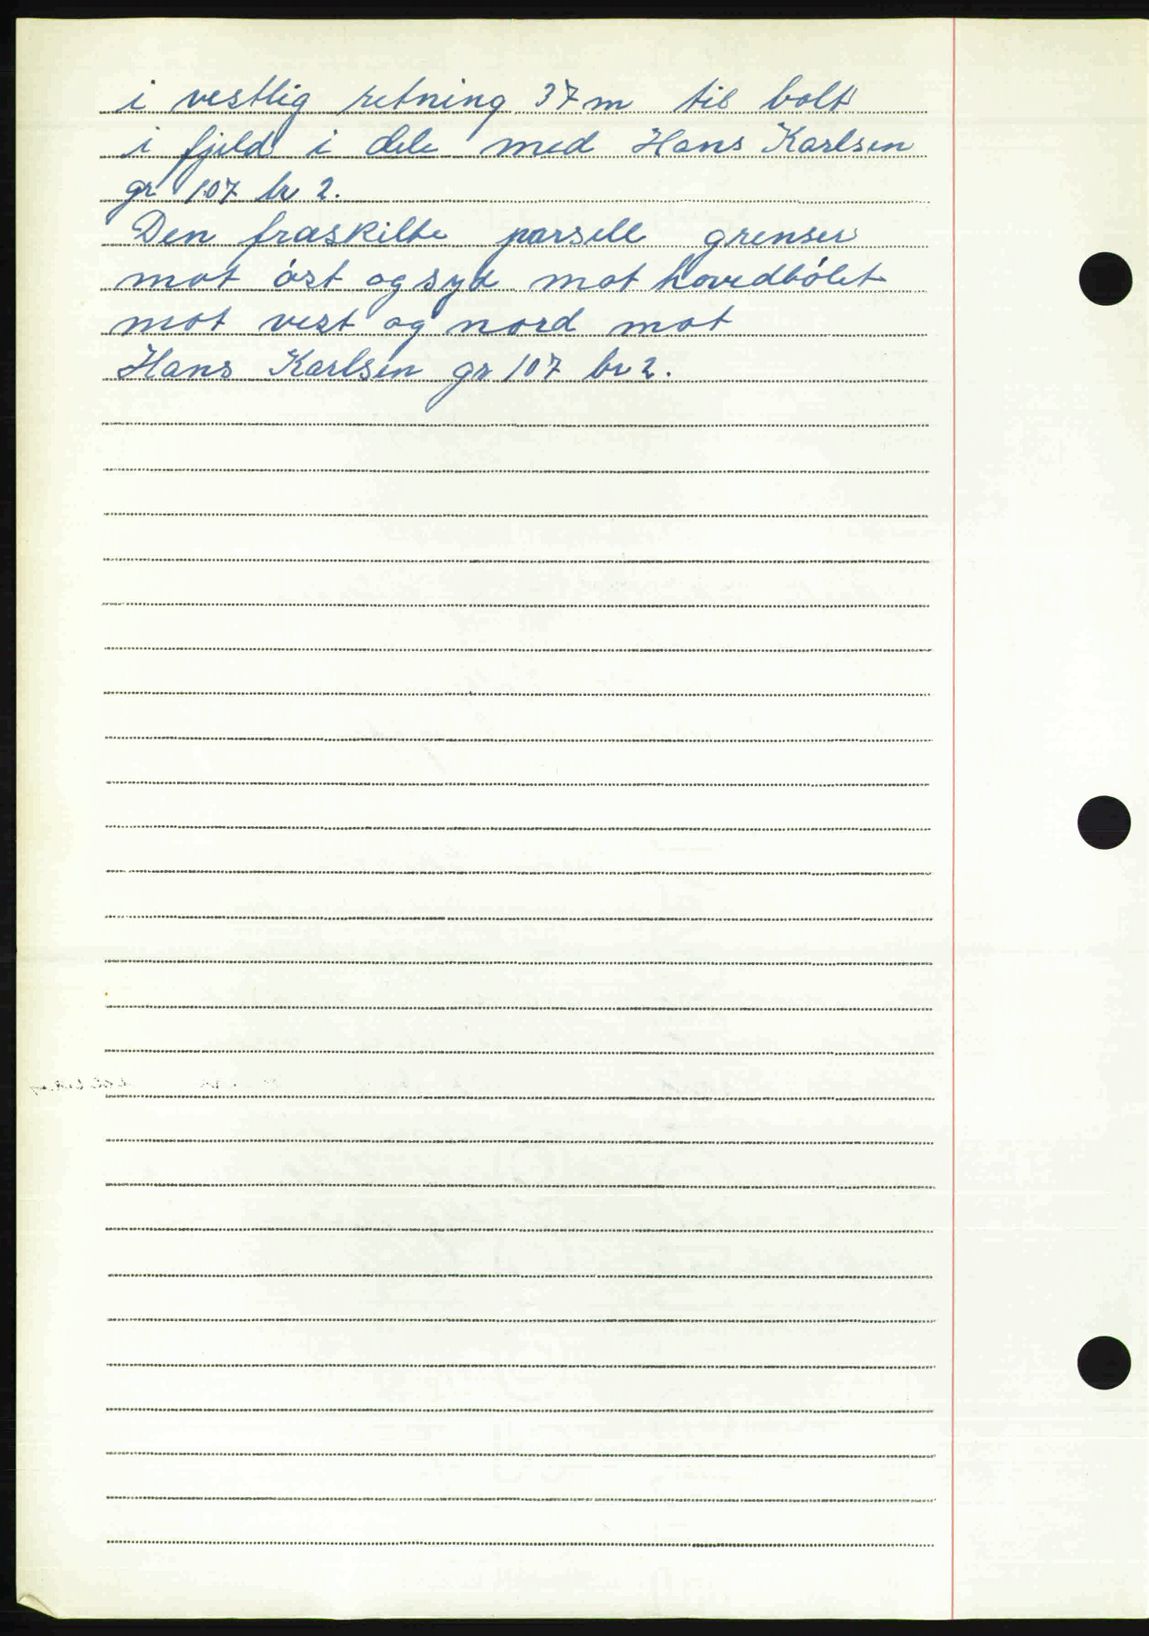 i vestlig retning 37 m til bolt
i fjeld i dele med Hans Karlsen
gr 107 br 2.
Den fraskilte parsell grenser
mot øst og syd mot hovedbølet
mot vest og nord mot
Hans Karlsen gr 107 br 2.